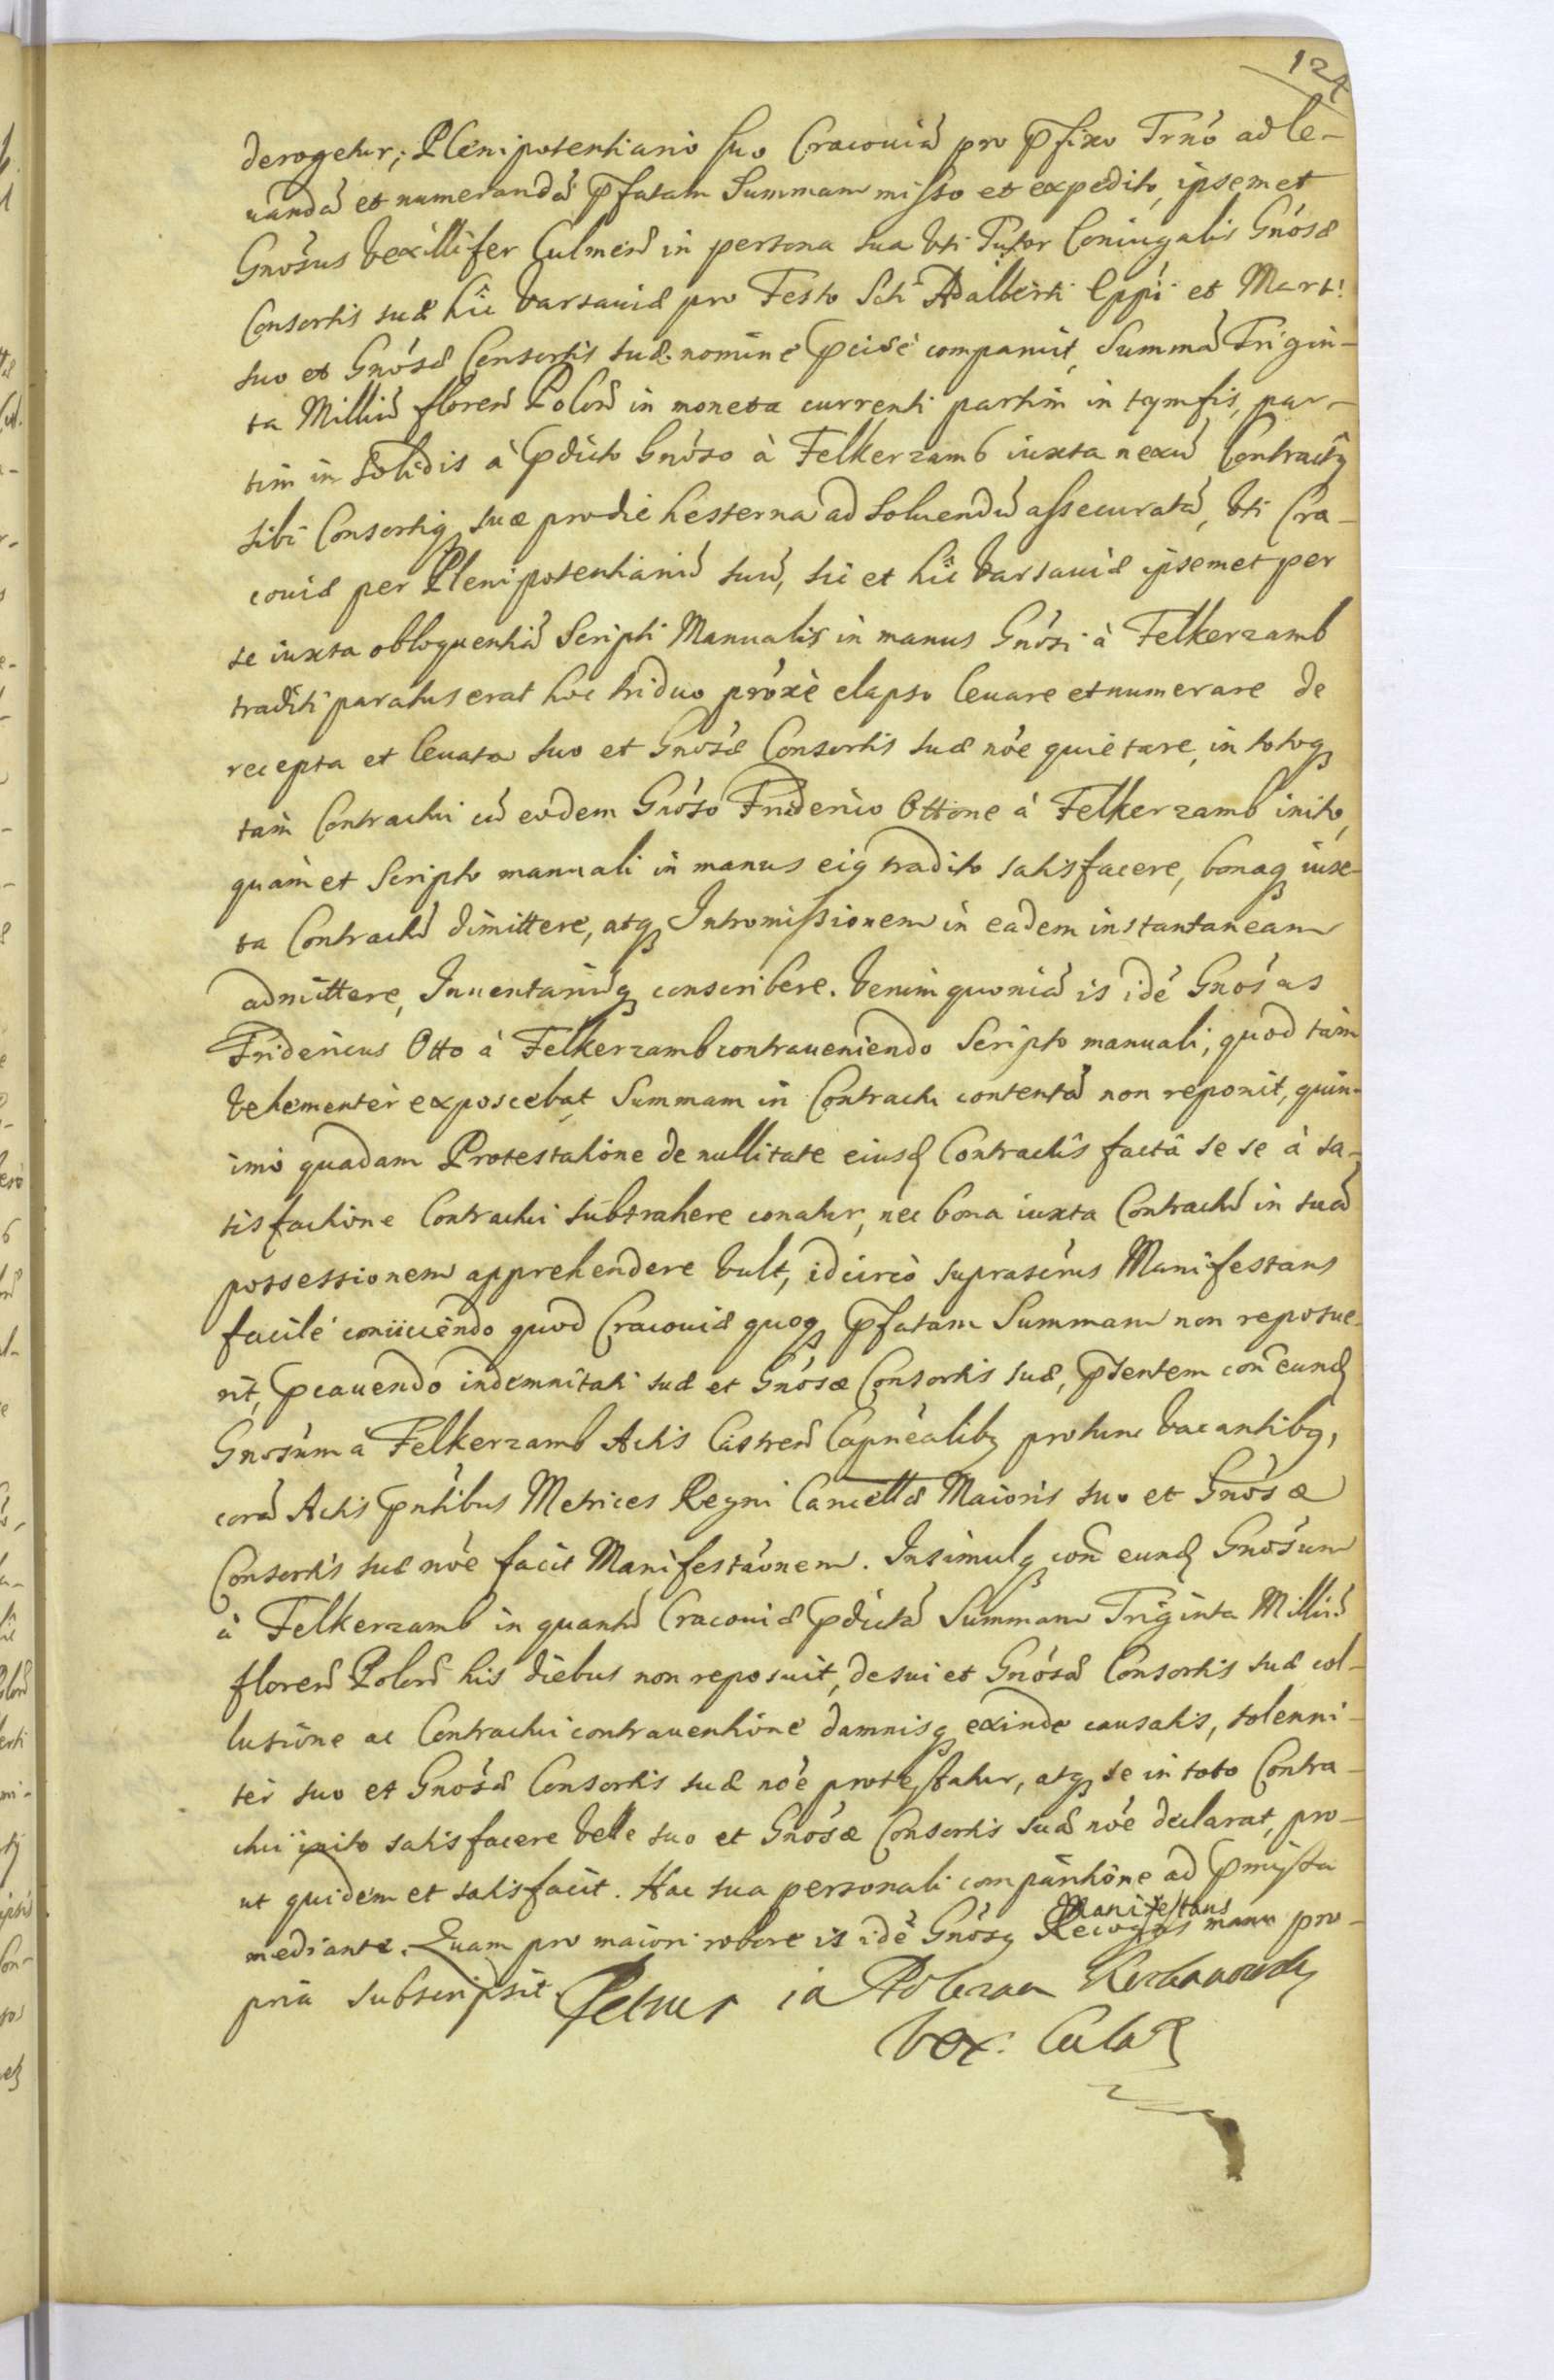 124
derogetur; Plenipotentiario suo Cracoviã pro Pfixo Trnó ad le-
uandã et numerandã Pfatam Summam misso et expedito, ipsemet
Gnosus Vexillifer Culmen̄ in persona sua uti Tutor Coniugalis Gnósæ
Consortis suæ hîc Varsauiæ pro Festo Scti Adalberti Eppi et Mart:
suo et Gnósæ Consortis suæ nomine Pcisè comparuit, Summã Trigin-
ta Milliũ floren̄ Polon̄ in moneta currenti partim in tymfis, par-
tim in Solidis à Pdicto Gnóso à Felkerzamb iuxta nexũ Contractꝰ
sibi Consortiq̃ suæ pro die hesterna ad soluendũ assecuratã, Vti Cra-
couiæ per Plenipotentiariũ suũ, sic et hîc Varsauiæ ipsemet per
se iuxta obloquentiã Scripti Manualis in manus Gnósi à Felkerzamb
traditi paratus erat hoc triduo próxè elapso leuare et numerare de
recepta et leuata suo et Gnósæ Consortis suæ nóe quietare, in totoq̃
tam Contractui cũ eodem Gnóso Friderico Ottone à Felkerzamb inito,
quàm et Scripto manuali in manus eiꝰ tradito satisfacere, bonaq̃ iux-
ta Contractũ dimittere, atq̃ Intromissionem in eadem instantaneam
admittere, Inuentariũq̃ conscribere. Verùm quoniã is idẽ Gnósus
Fridericus Otto à Felkerzamb contraueniendo Scripto manuali, quod tàm
Vehementèr exposcebat Summam in Contractu contentã non reponit, quin-
imò quadam Protestatione de nullitate eiusd̃ Contractûs factâ se se à sa-
tisfactione Contractui subtrahere conatur, nec bona iuxta Contractũ in suã
possessionem apprehendere Vult, idcircò suprascrius Manifestans
facilè coniiciendo quod Cracouiæ quoq̃ Pfatam Summam non reposue-
rit, Pcauendo indemnitati suæ et Gnósæ Consortis suæ, Psentem con̄ eund̃
Gnosúm à Felkerzamb Actis Castren̄ Capnéalibꝰ pro tunc Vacantibꝰ,
corã Actis Pntibus Metrices Regni Cancellæ Maioris suo et Gnósæ
Consortis suæ nóe facit Manifestáonem. Insimulq̃ con̄ eund̃ Gnosúm
à Felkerzamb in quantũ Cracouiæ Pdictã Summam Triginta Milliũ
floren̄ Polon̄ his diebus non reposuit, de sui et Gnósæ Consortis suæ col-
lusione ac Contractui contrauentione damnisq̃ exinde causatis, solenni-
tèr suo et Gnósæ Consortis suæ nóe protestatur, atq̃ se in toto Contra-
ctui inito satisfacere Velle suo et Gnósæ Consortis suæ nóe declarat, pro-
ut quidem et satisfacit. Hac sua personali comparitione ad Pmissa
mediante. Quam pro maiori robore is idẽ Gnósꝰ Recogns Manifestans manu pro-
pria subscripsit. Petrus
Vex: Cul